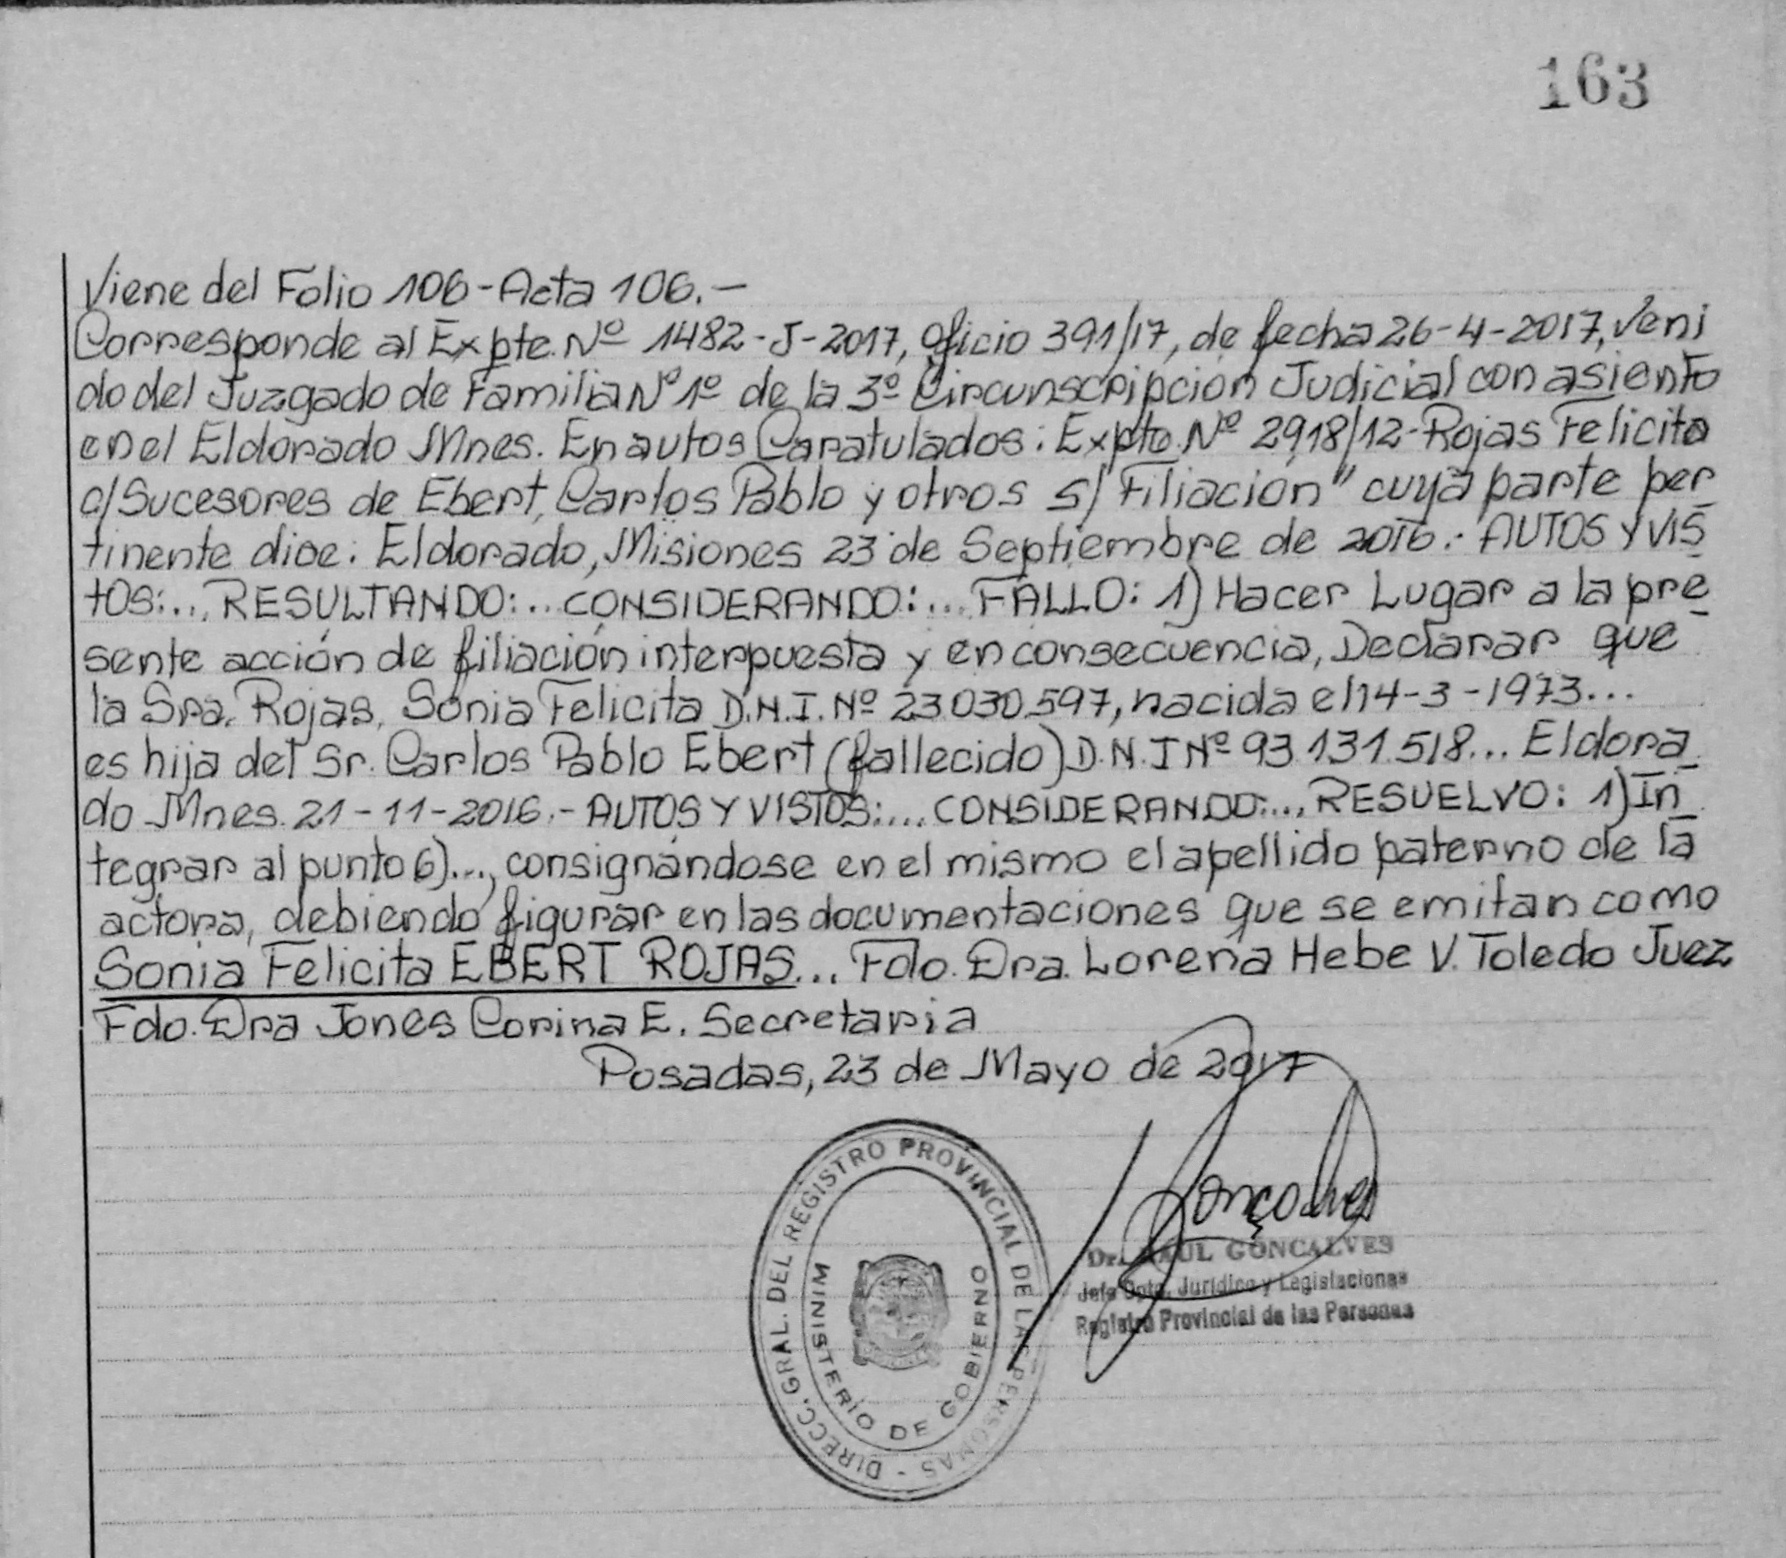 163
Viene del Folio 106-Acta 106.-
Corresponde al Expte. Nº 1482-J-2017, oficio 391/17, de fecha 26-4-2017, veni
do del Juzgado de Familia Nº 1º de la 3º Circunscripción Judicial con asiento
en el Eldorado Mnes. En autos Caratulados: Expte. Nº 2918/12-Rojas Felicita
c/ Sucesores de Ebert, Carlos Pablo y otros s/ Filiación" cuya parte per
tinente dice: Eldorado, Misiones 23 de Septiembre de 2016.- AUTOS Y VIS
tos:... RESULTANDO:... CONSIDERANDO:... FALLO: 1) Hacer Lugar a la pre
sente acción de filiación interpuesta y en consecuencia, Declarar que
la Sra. Rojas, Sonia Felicita D.N.I. Nº 23.030.597, nacida el 14-3-1973...
es hija del Sr. Carlos Pablo Ebert (fallecido) D.N.I Nº 93.131.518... Eldora
do Mnes. 21-11-2016.- AUTOS Y VISTOS:... CONSIDERANDO:... RESUELVO: 1) In
tegrar al punto 6)..., consignándose en el mismo el apellido paterno de la
actora, debiendo figurar en las documentaciones que se emitan como
Sonia Felicita EBERT ROJAS... Fdo. Dra. Lorena Hebe V. Toledo Juez
Fdo. Dra Jones Corina E. Secretaria
Posadas, 23 de Mayo de 2017
DIRECC. GRAL. DEL REGISTRO PROVINCIAL DE LAS PERSONAS -
MINISTERIO DE GOBIERNO
Goncalves
Dr. RAUL GONCALVES
Jefe Dpto. Jurídico y Legislaciones
Registro Provincial de las Personas